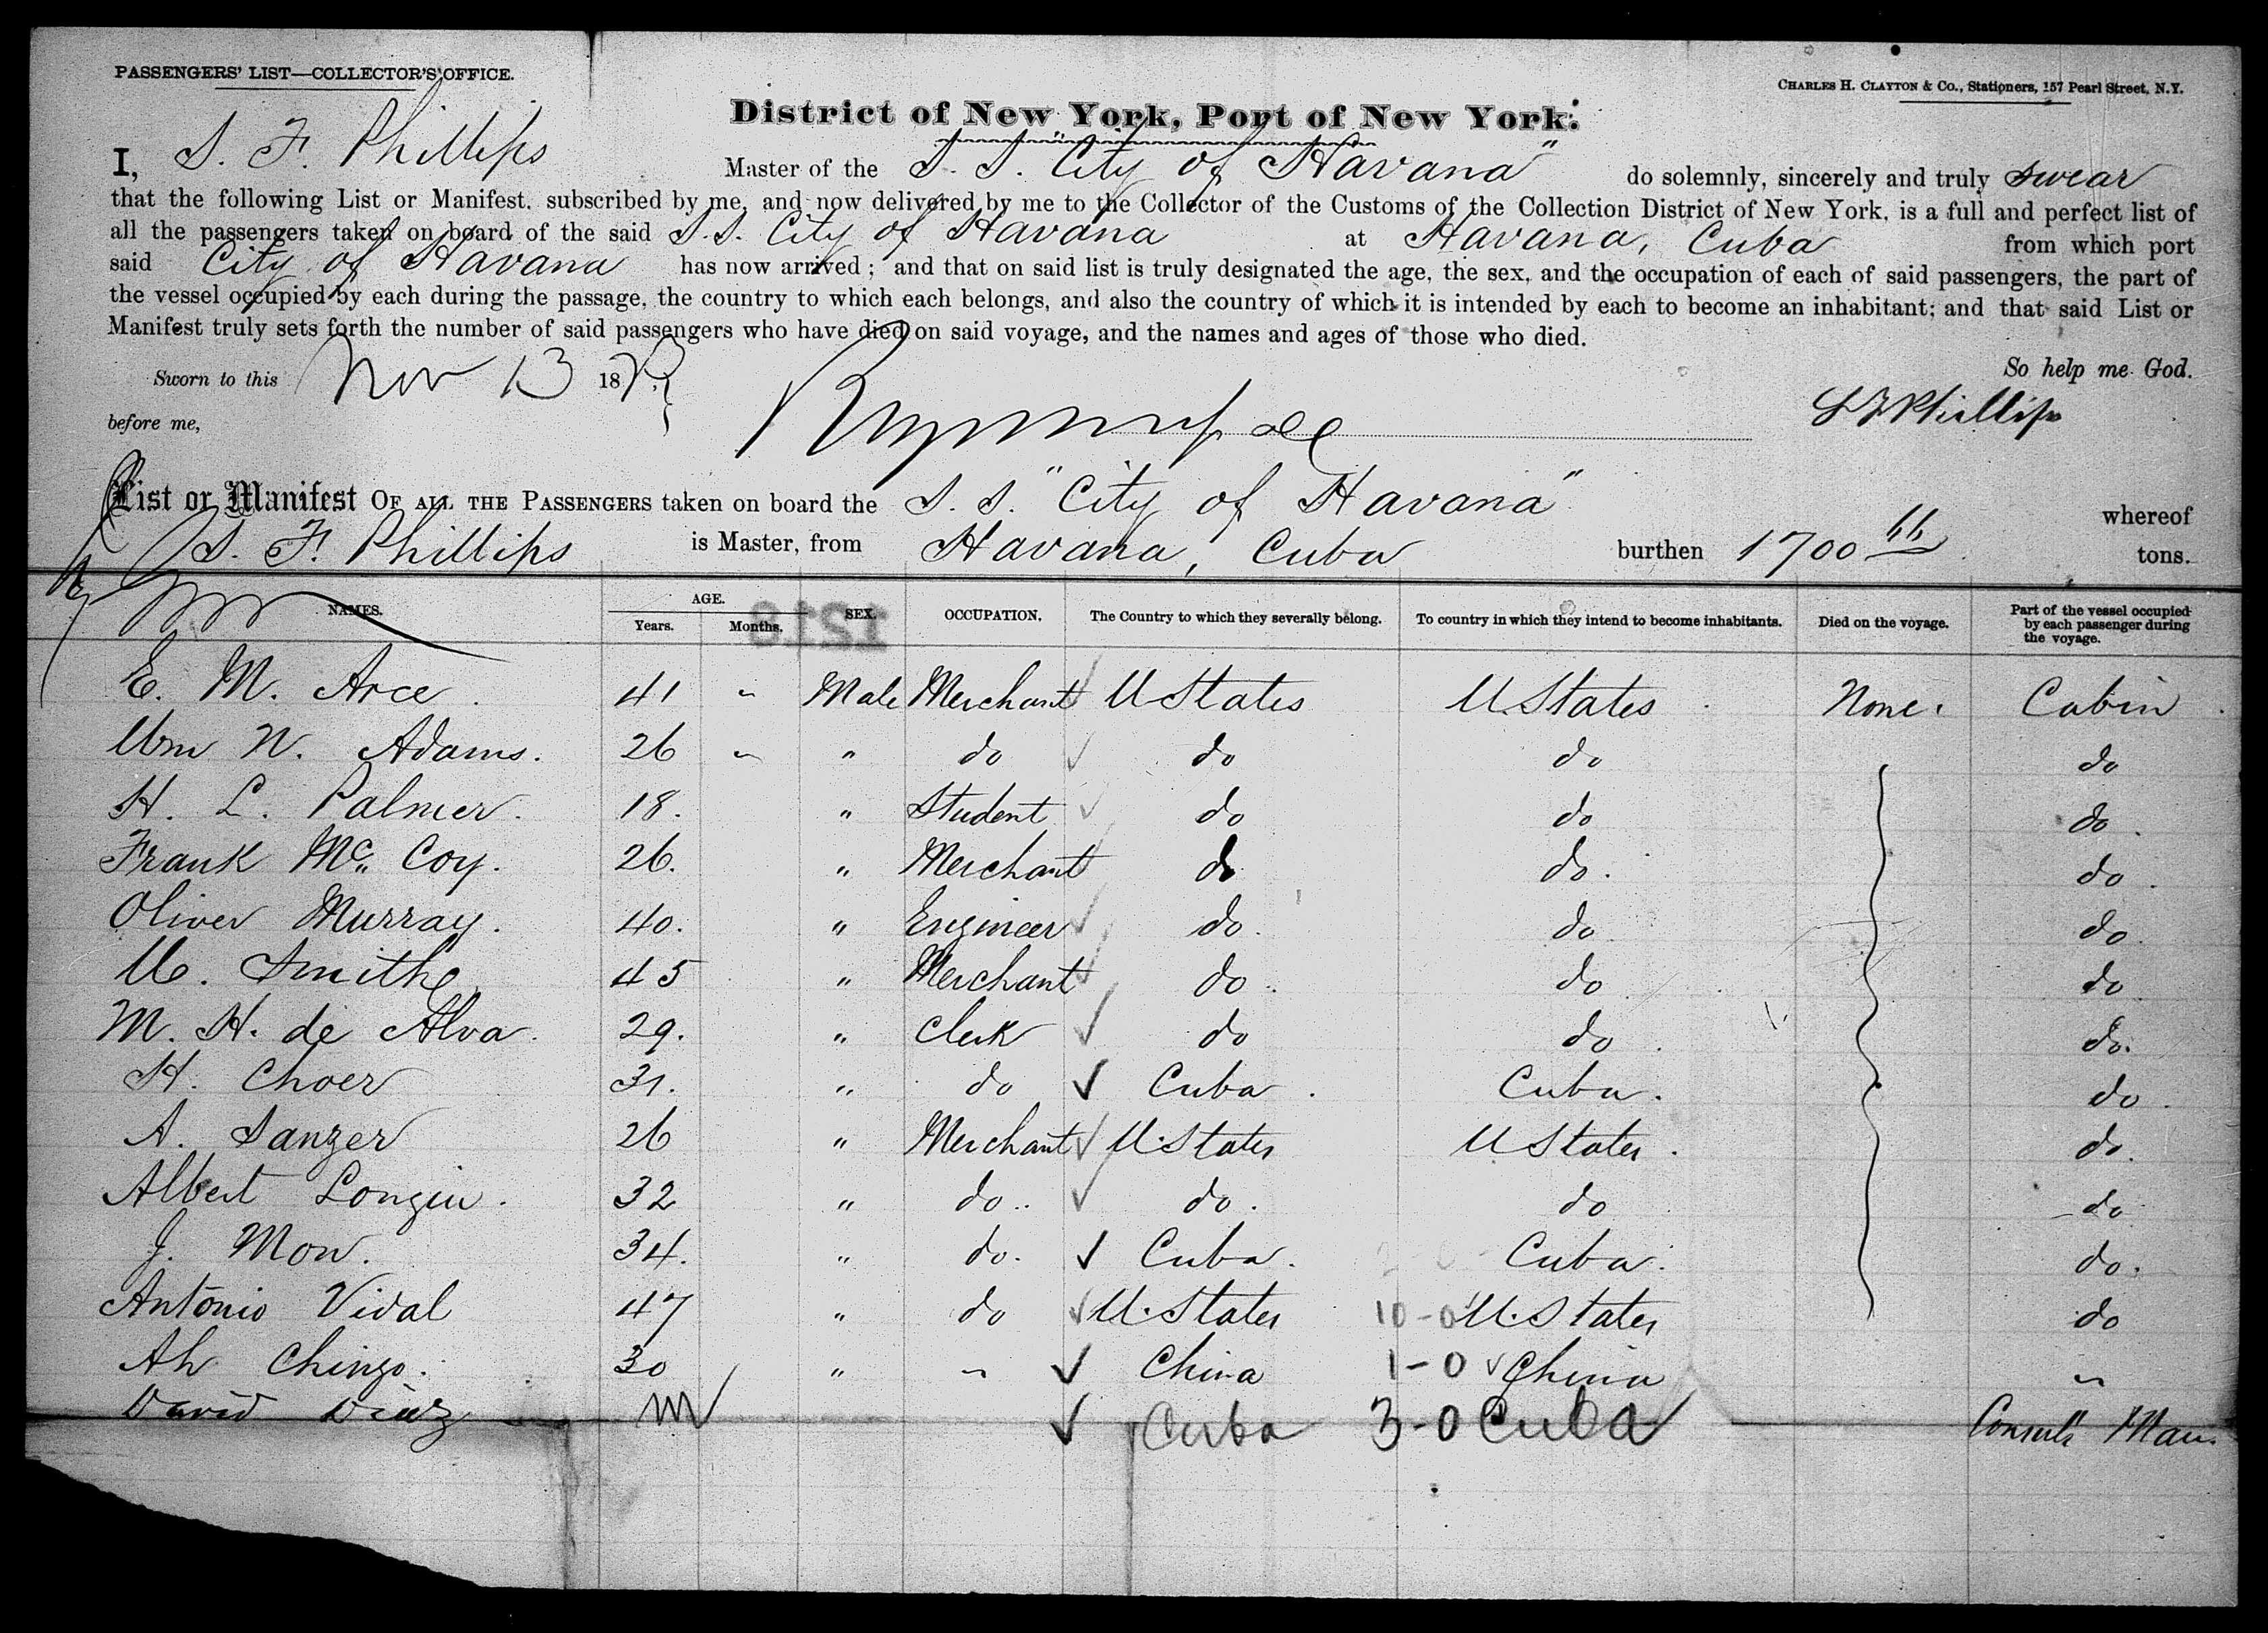 PASSENGERS' LIST—COLLECTOR'S OFFICE.
CHARLES H. CLAYTON & Co., Stationers, 157 Pearl Street, N.Y.
District of New York, Port of New York:
I, S. F. Phillips Master of the S. S. "City of Havana" do solemnly, sincerely and truly swear
that the following List or Manifest, subscribed by me, and now delivered by me to the Collector of the Customs of the Collection District of New York, is a full and perfect list of
all the passengers taken on board of the said S.S. City of Havana at Havana, Cuba from which port
said City of Havana has now arrived; and that on said list is truly designated the age, the sex, and the occupation of each of said passengers, the part of
the vessel occupied by each during the passage, the country to which each belongs, and also the country of which it is intended by each to become an inhabitant; and that said List or
Manifest truly sets forth the number of said passengers who have died on said voyage, and the names and ages of those who died.
So help me God.
Sworn to this Nov 13 187
before me,
S F Phillips
List or Manifest OF ALL THE PASSENGERS taken on board the S. S. "City of Havana" whereof
S. F. Phillips is Master, from Havana, Cuba burthen 1700 66 tons.
NAMES. AGE. Years. Months. SEX. OCCUPATION. The Country to which they severally belong. To country in which they intend to become inhabitants. Died on the voyage. Part of the vessel occupied by each passenger during the voyage.
1212
E. M. Arce. 41 " Male Merchant U States U. States None. Cabin
Wm N. Adams. 26 " " do do do do
H. L. Palmer. 18. " Student do do do
Frank Mc. Coy. 26. " Merchant do do. do.
Oliver Murray. 40. " Engineer do. do do
M. Smith 45 " Merchant do. do do
M. H. de Alva. 29. " Clerk do do do.
H. Choer 31. " do Cuba. Cuba. do.
A. Sanzer 26 " Merchant U. States U States. do.
Albert Longiu. 32 " do.. do. do do
J. Mon. 34. " do. Cuba. Cuba. do.
Antonio Vidal 47 " do U. States 10-0 U. States do
Ah Chingo. 30 " " China 1-0 China "
David Diaz m Cuba 3-0 Cuba Consul's Man.